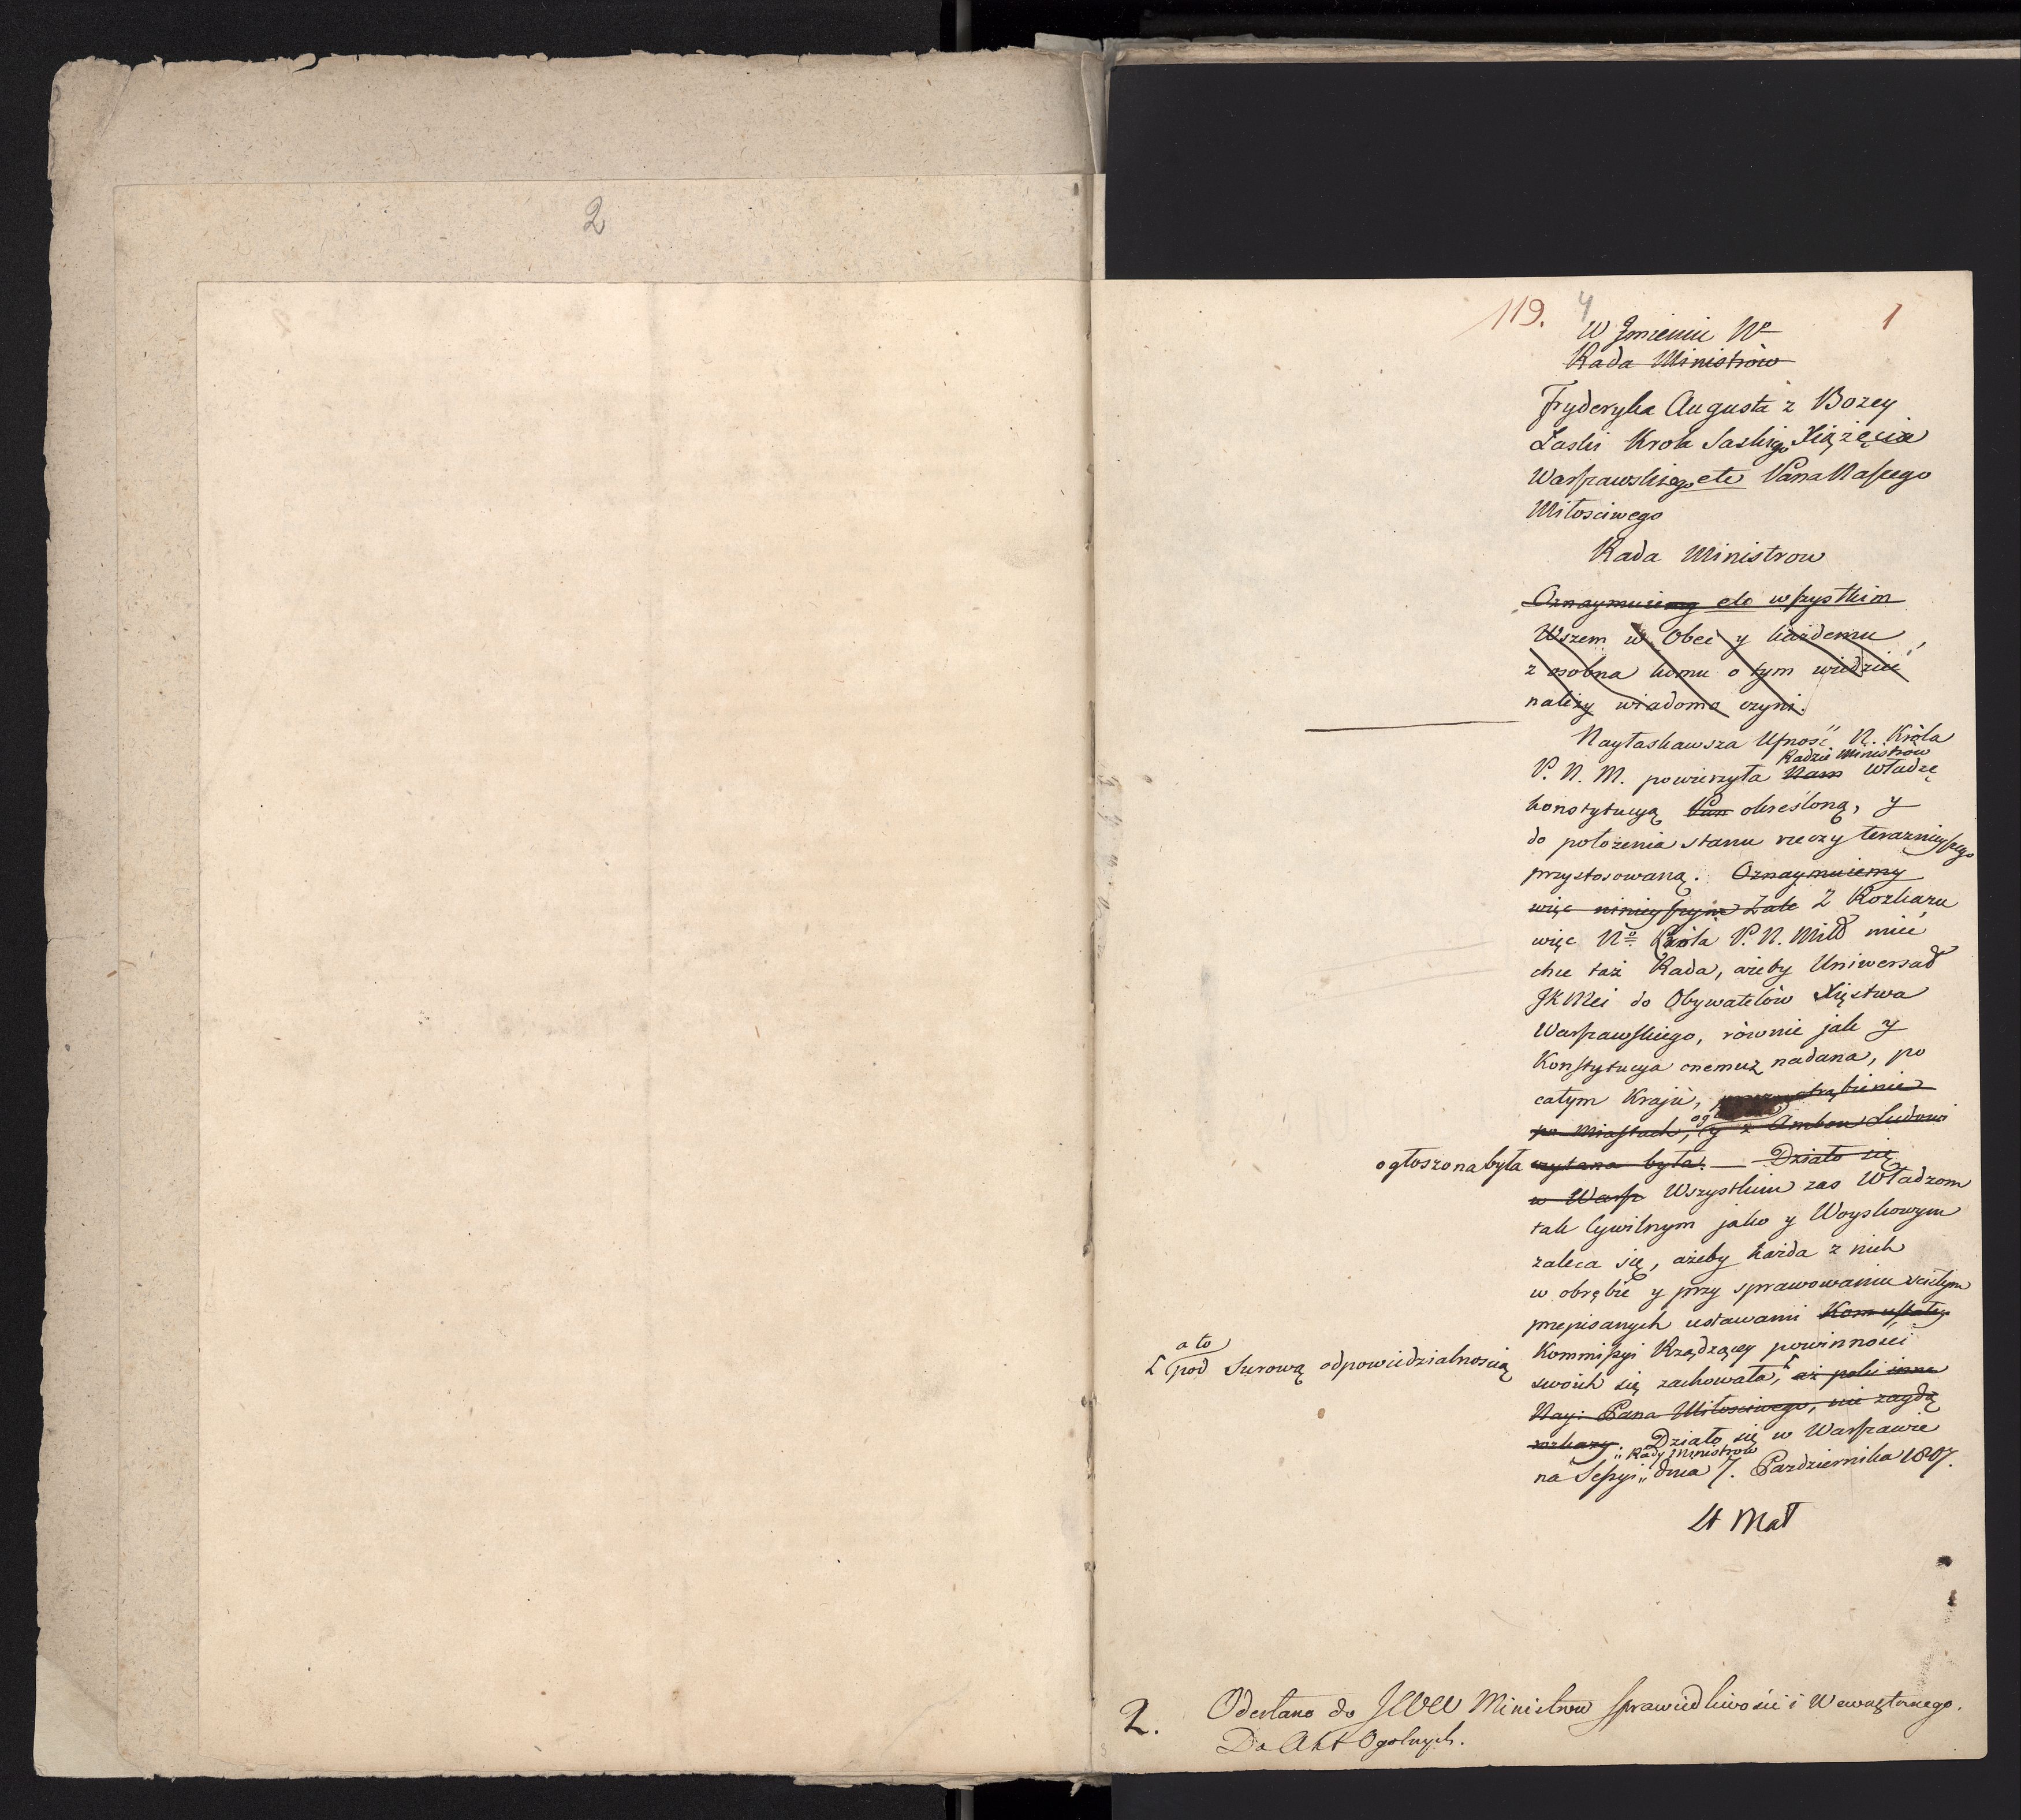 2
119. 4 1
W Jmieniu No
Rada Ministrów
Fryderyka Augusta z Bozey
Łaski Krola Saskiego Xiążęcia
Warszawskiego etc Pana Naszego
Miłosciwego
Rada Ministrow
Oznaymuiemy etc wszystkim
Wszem w Obec y każdemu
z osobna komu o tym wiedzieć
należy wiadomo czyni.
Nayłaskawsza Ufność N. Króla
Radzie Ministrów
P. N. M. powierzyła Nam władzę
konstytucyą określoną, y
do położenia stanu rzeczy teraznieyszego
przystosowaną. Oznaymuiemy
więc ninieyszym Z Rozkazu
więc No Króla P. N. Miłł mieć
chce taż Rada, ażeby Uniwersał
JKMci do Obywatelów Xięstwa
Warszawskiego, równie jak y
Konstytucya onemuż nadana, po
całym Kraju, otrąbienie
po Miastach, y z Ambon Ludowi
ogłoszona była czytana była. — Działo się
w Warsz Wszystkim zas Władzom
tak Cywilnym jako y Woyskowym
zaleca się, ażeby każda z nich
w obrębie y przy sprawowaniu scisłym
przepisanych ustawami
Kommissyi Rządzącey powinności
a to
pod surową odpowiedzialnoscią
swoich się zachowała, aż poki inne
Nay: Pana Miłosciwego, nie zaydą
rozkazy. Działo się w Warszawie
Rady Ministrow
na Sessyi dnia 7. Pazdziernika 1807.
St Mał
2. Odesłano do JWW Ministrow Sprawiedliwości i Wewnętrznego.
Do Akt Ogolnych.